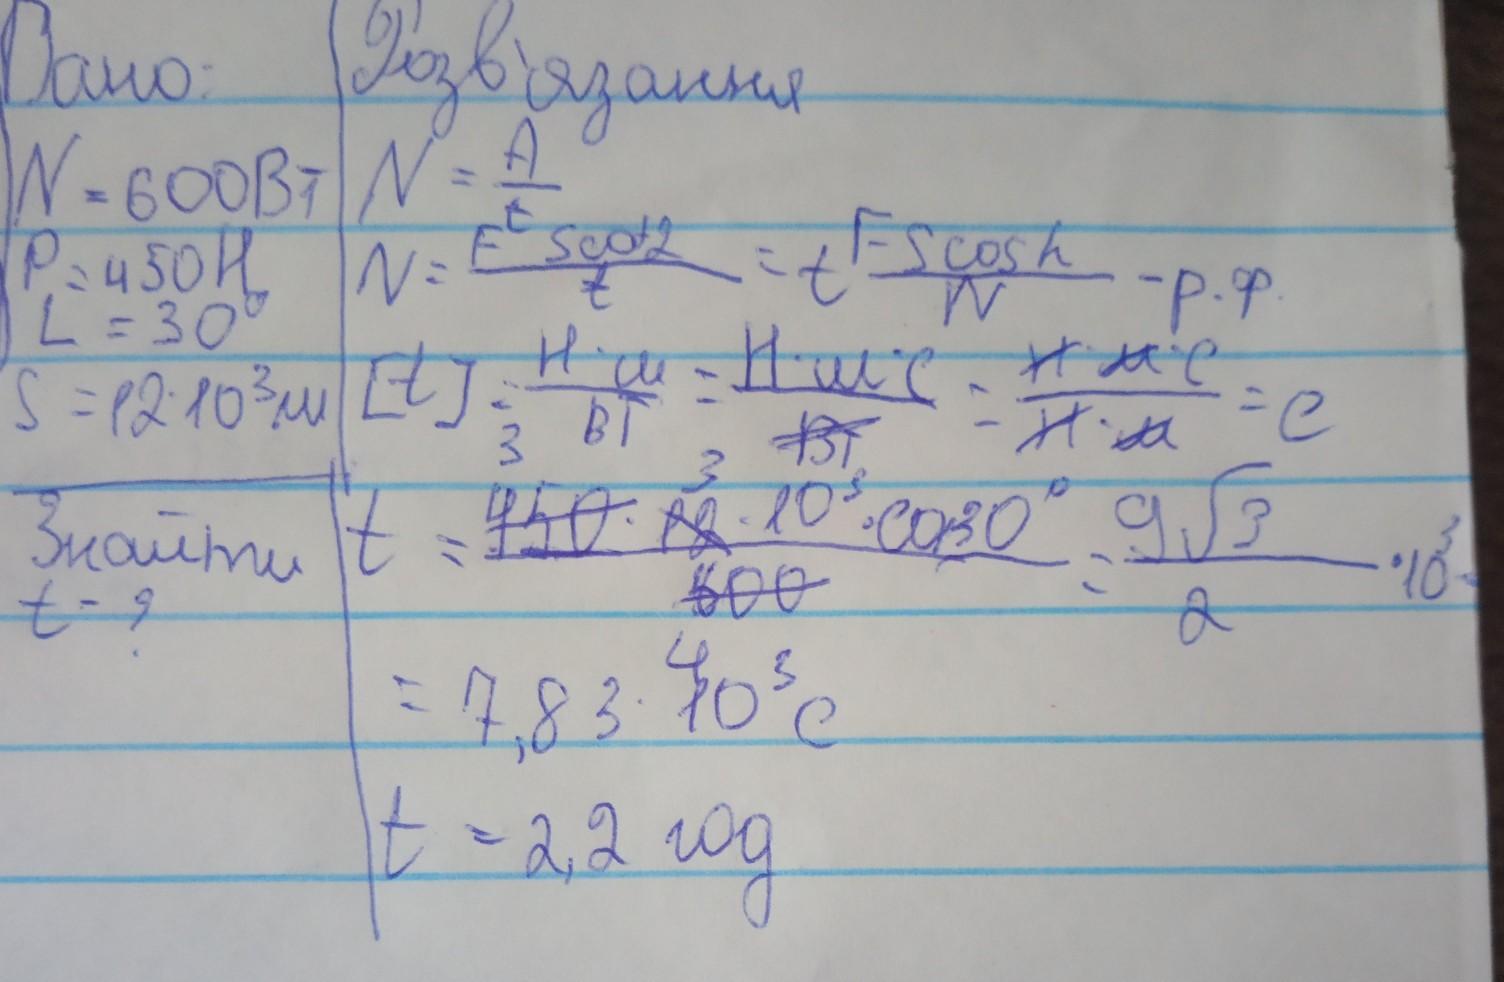 Дано:
N = 600Вт
P = 450Н
L = 30°
S = 12·10³м
Знайти
t - ?
Розв'язання
N = A/t
N = F S cosL/t = t F S cosL/N - р.ф.
[t] = Н·м/Вт = Н·м·с/Вт = Н·м·с/Н·м = с
3 3
t = 450·12·10³·cos30°/600 = 9√3/2 ·10³ -
4
= 7,83·10³ с
t = 2,2 год